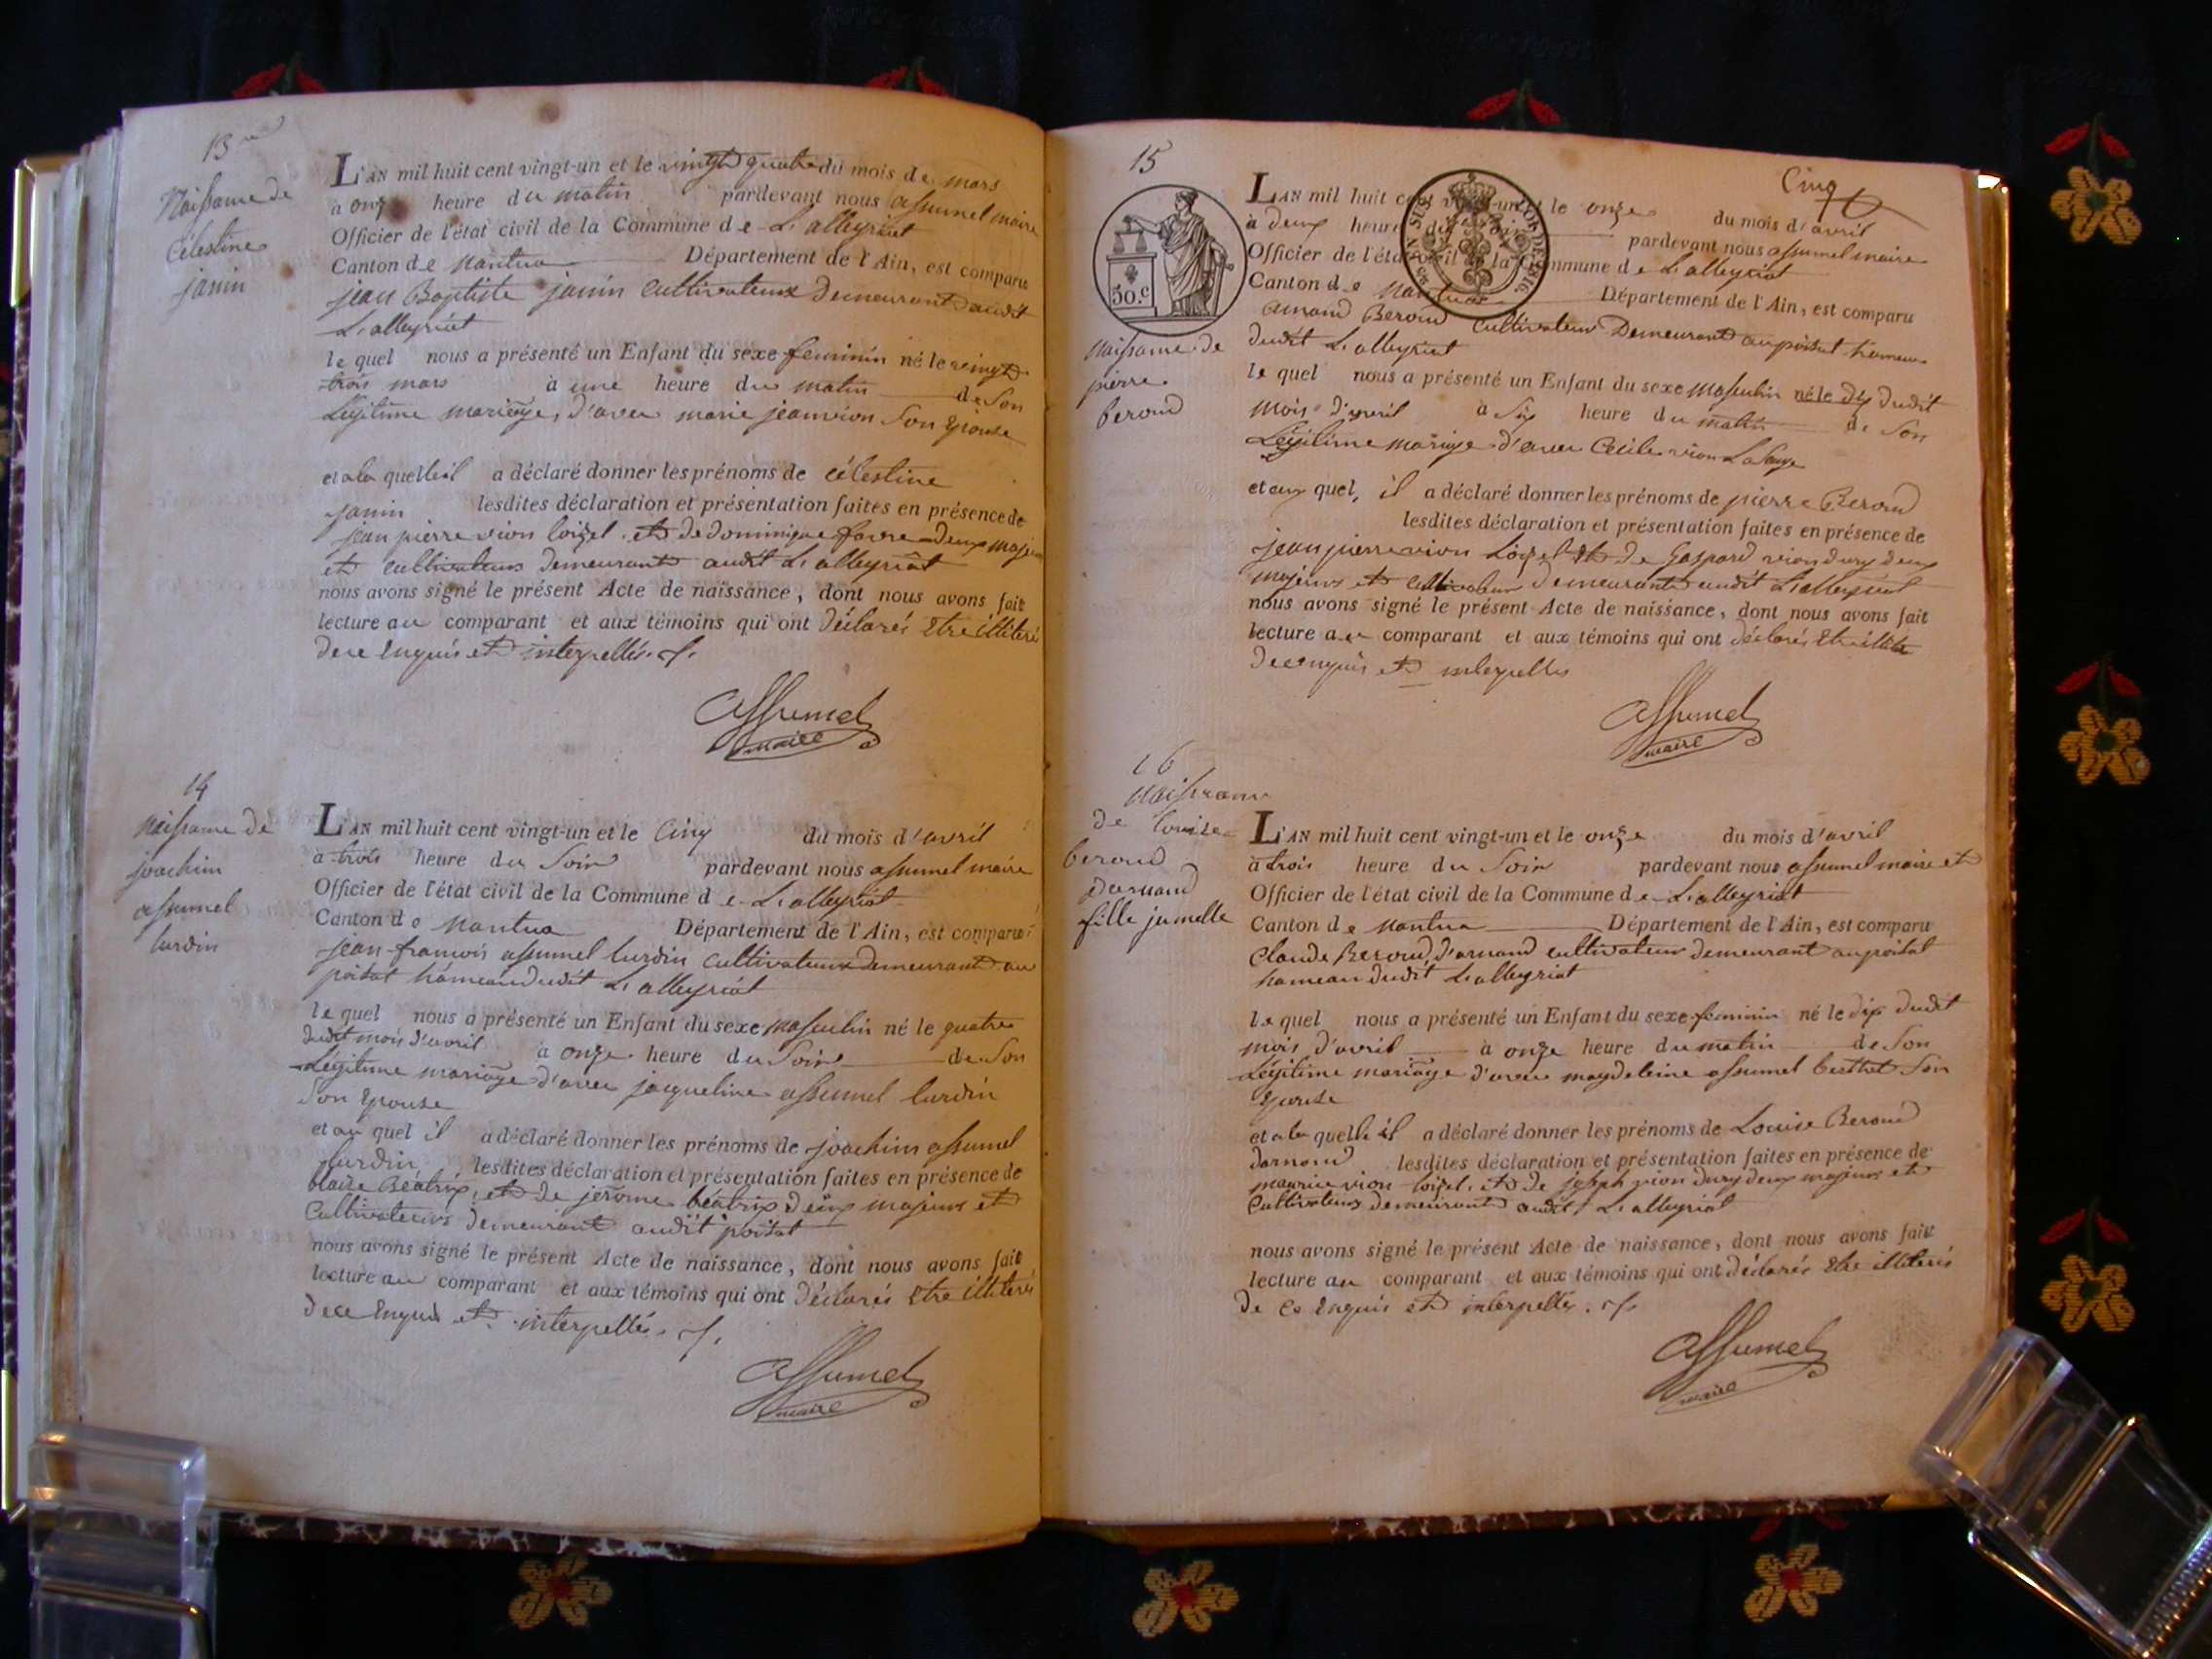 13
Naissance de
Célestine
janin
L'AN mil huit cent vingt-un et le vingt quatre du mois de mars
à onze heure du matin pardevant nous assumel maire
Officier de l'état civil de la Commune de Lalleyriat
Canton de Nantua Département de l'Ain, est comparu
jean Baptiste janin Cultivateur Demeurant audit
Lalleyriat
le quel nous a présenté un Enfant du sexe feminin né le vingt
trois mars à une heure du matin de Son
Légitime mariage, d'avec marie jeanvion Son Epouse
et a la quelle il a déclaré donner les prénoms de célestine
janin lesdites déclaration et présentation faites en présence de
jean pierre vion loizel et de dominique favre deux majeurs
et cultivateurs demeurant audit Lalleyriat
nous avons signé le présent Acte de naissance, dont nous avons fait
lecture au comparant et aux témoins qui ont déclarés Etre illiterés
de ce Enquis et interpellés
assumel
maire
14
Naissance de
joachim
assumel
lurdin
L'AN mil huit cent vingt-un et le Cinq du mois d'avril
à trois heure du Soir pardevant nous assumel maire
Officier de l'état civil de la Commune de Lalleyriat
Canton de Nantua Département de l'Ain, est comparu
jean francois assumel lurdin cultivateur demeurant au
poisat hameau dudit Lalleyriat
le quel nous a présenté un Enfant du sexe masculin né le quatre
dudit mois d'avril à onze heure du Soir de Son
Légitime mariage d'avec jacqueline assumel lurdin
Son Epouse
et au quel il a déclaré donner les prénoms de joachim assumel
lurdin lesdites déclaration et présentation faites en présence de
blaise Béatrix, et de jerome béatrix deux majeurs et
Cultivateurs demeurant audit poisat
nous avons signé le présent Acte de naissance, dont nous avons fait
lecture au comparant et aux témoins qui ont déclarés Etre illiterés
de ce Enquis et interpellés
assumel
maire
Cinq
15
50.c
Naissance de
pierre
beroud
L'AN mil huit cent vingt-un et le onze du mois d'avril
à deux heure du Soir pardevant nous assumel maire
Officier de l'état civil de la Commune de Lalleyriat
Canton de Nantua Département de l'Ain, est comparu
Amand Beroud cultivateur Demeurant au poisat hameau
dudit Lalleyriat
le quel nous a présenté un Enfant du sexe masculin né le dix dudit
mois d'avril à Six heure du matin de Son
Légitime mariage d'avec Cecile vion
et au quel, il a déclaré donner les prénoms de pierre Beroud
lesdites déclaration et présentation faites en présence de
jean pierre vion Loizel et de Gaspard vion dury deux
majeurs et cultivateurs demeurant audit Lalleyriat
nous avons signé le présent Acte de naissance, dont nous avons fait
lecture au comparant et aux témoins qui ont déclarés Etre
de ce enquis et interpellés
assumel
maire
16
Naissance
de louise
beroud
darnand
fille jumelle
L'AN mil huit cent vingt-un et le onze du mois d'avril
à trois heure du Soir pardevant nous assumel maire et
Officier de l'état civil de la Commune de Lalleyriat
Canton de Nantua Département de l'Ain, est comparu
Claude Beroud, d'arnand cultivateur demeurant au poisat
hameau dudit Lalleyriat
le quel nous a présenté un Enfant du sexe feminin né le dix dudit
mois d'avril à onze heure du matin de Son
Légitime mariage d'avec magdeleine assumel berthet Son
Epouse
et a la quelle il a déclaré donner les prénoms de Louise Beroud
darnand lesdites déclaration et présentation faites en présence de
maurice vion loizel et de joseph vion dury deux majeurs et
Cultivateurs demeurant audit Lalleyriat
nous avons signé le présent Acte de naissance, dont nous avons fait
lecture au comparant et aux témoins qui ont déclarés Etre illiterés
de ce Enquis et interpellés
assumel
maire